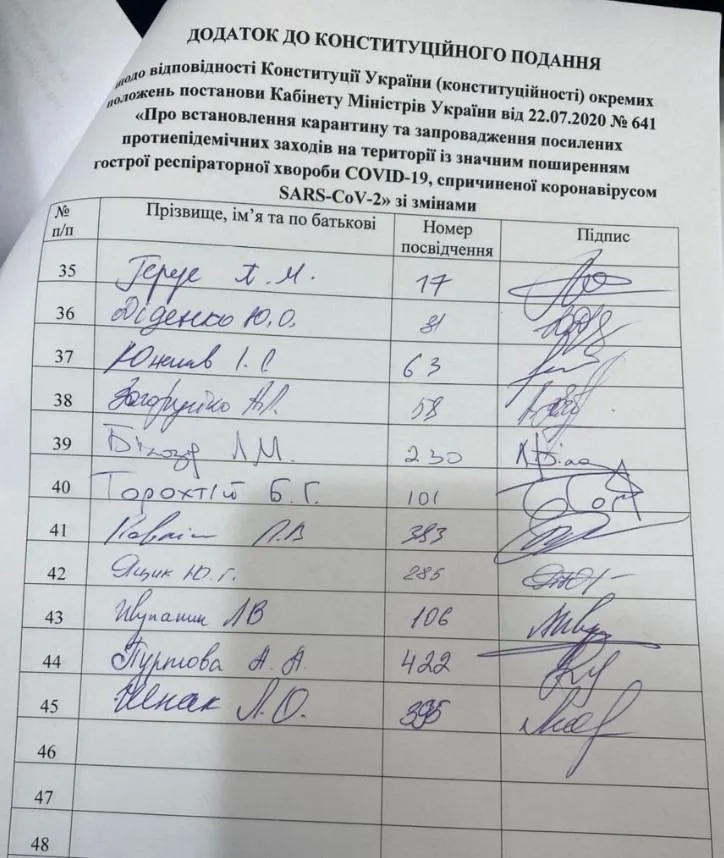 ДОДАТОК ДО КОНСТИТУЦІЙНОГО ПОДАННЯ
щодо відповідності Конституції України (конституційності) окремих
положень постанови Кабінету Міністрів України від 22.07.2020 № 641
«Про встановлення карантину та запровадження посилених
протиепідемічних заходів на території із значним поширенням
гострої респіраторної хвороби COVID-19, спричиненої коронавірусом
SARS-CoV-2» зі змінами
№ п/п Прізвище, ім’я та по батькові Номер посвідчення Підпис
35 Герус А. М. 17
36 Діденко Ю.О. 81
37 І. С. 63
38 Загоруйко А.Л. 58
39 Білозір Л.М. 230
40 Торохтій Б. Г. 101
41 Л.В 383
42 Ящик Ю. Г. 285
43 Івупанин ЛВ 106
44 Пуртова А. А. 422
45 Шпак Л.О. 395
46
47
48